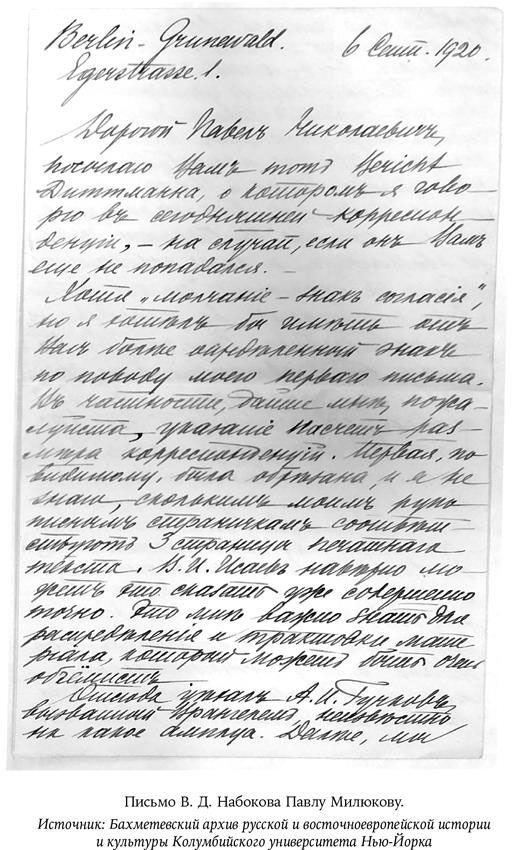 Berlin-Grunewald.
6 Сент. 1920.
Egerstrasse 1.
Дорогой Павелъ Николаевичъ,
посылаю Вамъ тотъ Bericht
Диттманна, о которомъ я гово-
рю въ сегодняшней корреспон-
денціи, – на случай, если онъ Вамъ
еще не попадался. –
Хотя „молчаніе – знакъ согласія",
но я хотѣлъ бы имѣть отъ
Васъ болѣе опредѣленный знакъ
по поводу моего перваго письма.
Въ частности, дайте мнѣ, пожа-
луйста, указаніе насчетъ раз-
мѣра корреспонденцій. Первая, по-
видимому, была обрѣзана, и я не
знаю, сколькимъ моимъ руко-
писнымъ страничкамъ соотвѣт-
ствуютъ 3 страницы печатнаго
текста. В. И. Исаевъ навѣрно мо-
жетъ это сказать уже совершенно
точно. Это мнѣ важно знать для
распредѣленія и трактовки мате-
ріала, который можетъ быть очень
объёмистъ.
Отсюда уѣхалъ А. И. Гучковъ,
вызванный Врангелемъ неизвѣстно
на какое амплуа. Далѣе, мы
Письмо В. Д. Набокова Павлу Милюкову.
Источник: Бахметевский архив русской и восточноевропейской истории
и культуры Колумбийского университета Нью-Йорка